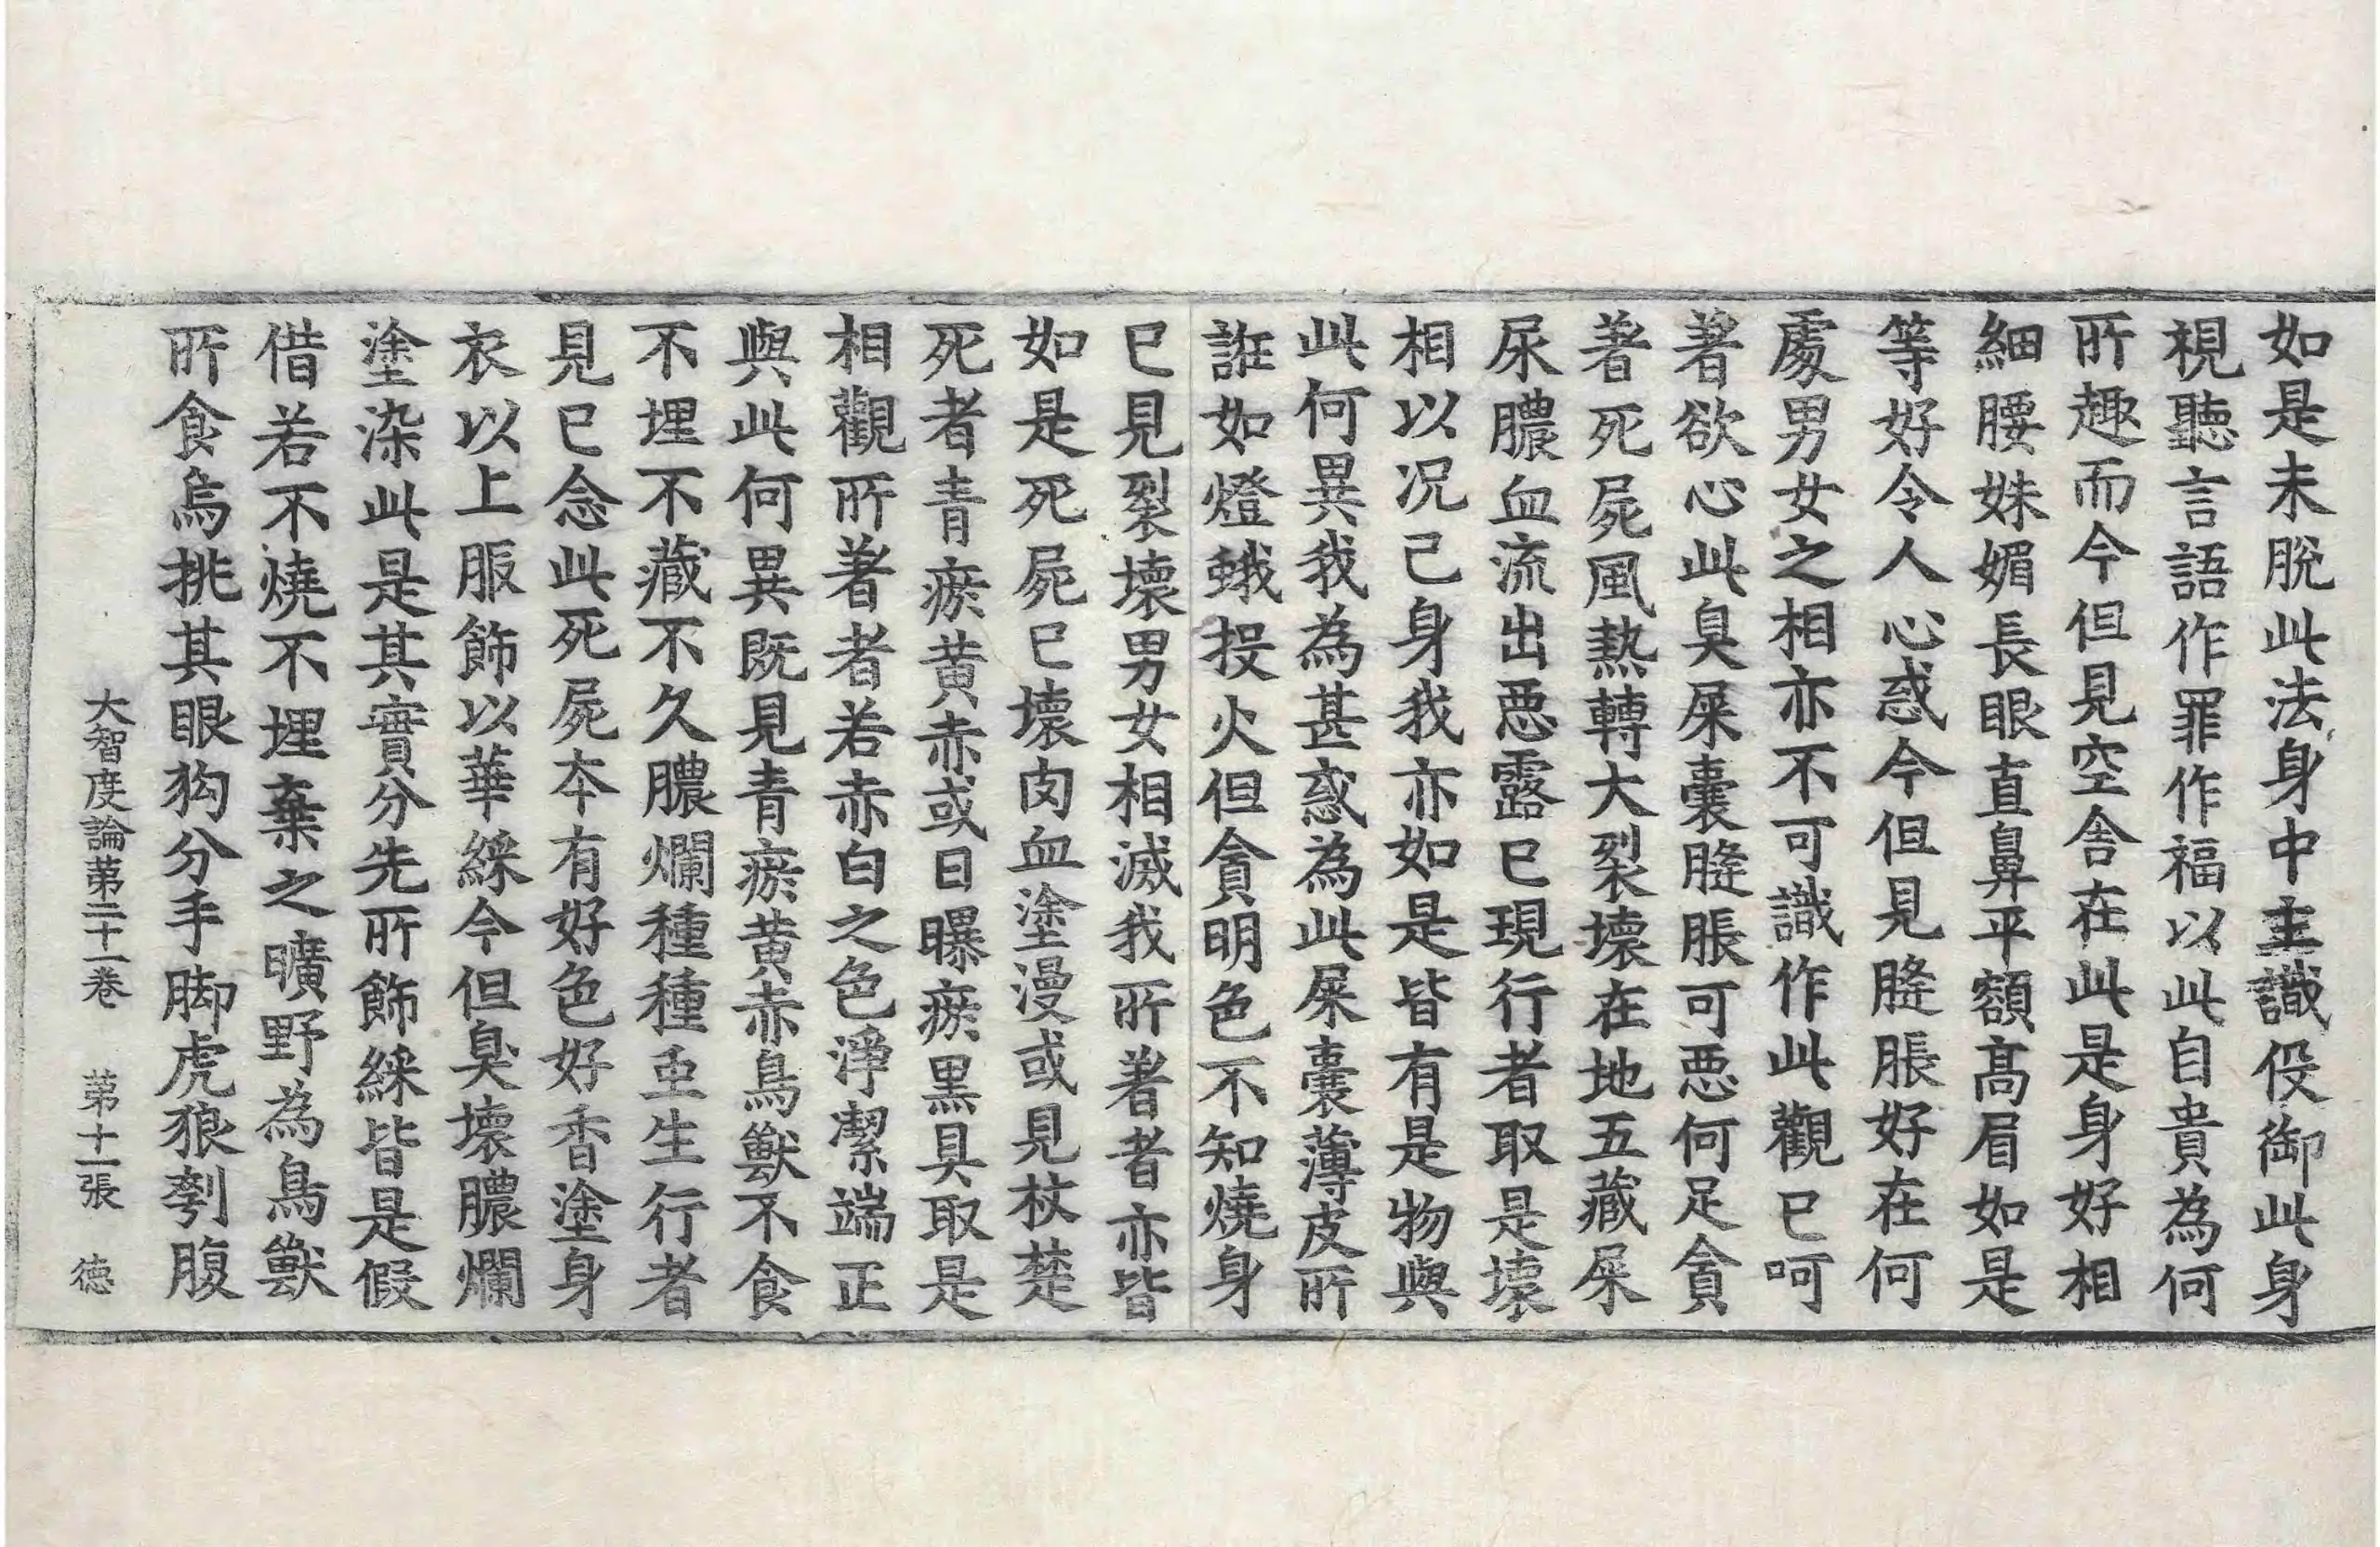 如是未脫此法身中主識役御此身
視聽言語作罪作福以此自貴為何
所趣而今但見空舎在此是身好相
細腰姝媚長眼直鼻平額髙眉如是
等好令人心惑今但見膖脹好在何
處男女之相亦不可識作此觀已呵
著欲心此臭屎囊膖脹可惡何足貪
著死屍風熱轉大裂壞在地五藏屎
尿膿血流出惡露已現行者取是壞
相以况己身我亦如是皆有是物與
此何異我為甚惑為此屎囊薄皮所
誑如燈蛾投火但貪明色不知燒身
已見裂壞男女相滅我所著者亦皆
如是死屍已壞肉血塗漫或見杖楚
死者青瘀黄赤或日曝瘀黒具取是
相觀所著者若赤白之色淨潔端正
與此何異既見青瘀黄赤鳥獸不食
不埋不藏不久膿爛種種虫生行者
見已念此死屍本有好色好香塗身
衣以上服飾以華綵今但臭壞膿爛
塗染此是其實分先所飾綵皆是假
借若不燒不埋棄之曠野為鳥獸
所食烏挑其眼狗分手脚虎狼刳腹
大智度論苐二十一卷 苐十一張 德